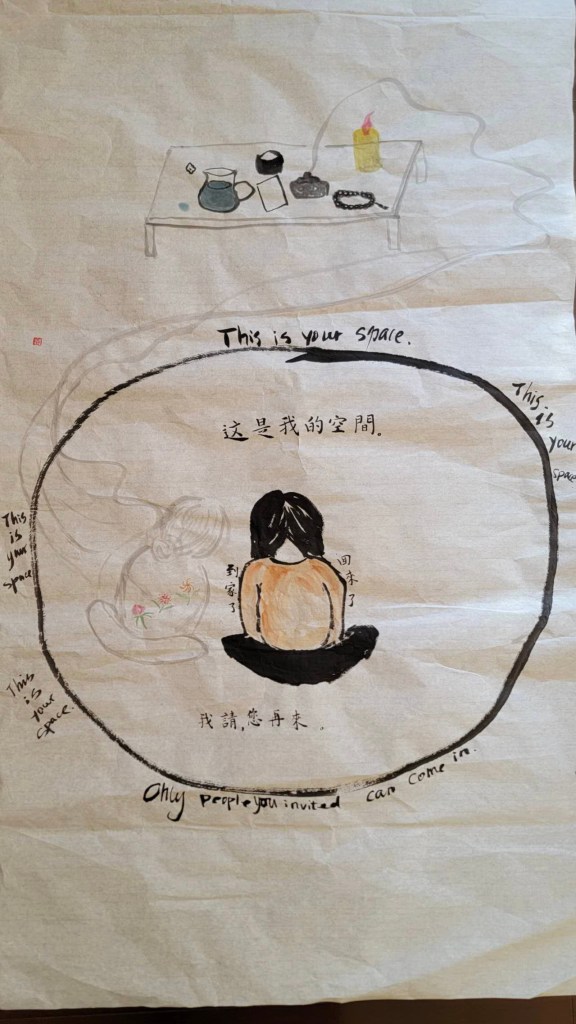 This is your space.
This is your space
这是我的空間.
This is your space
到家了
回来了
This is your space.
我請,您再来。
Only people you invited can come in.